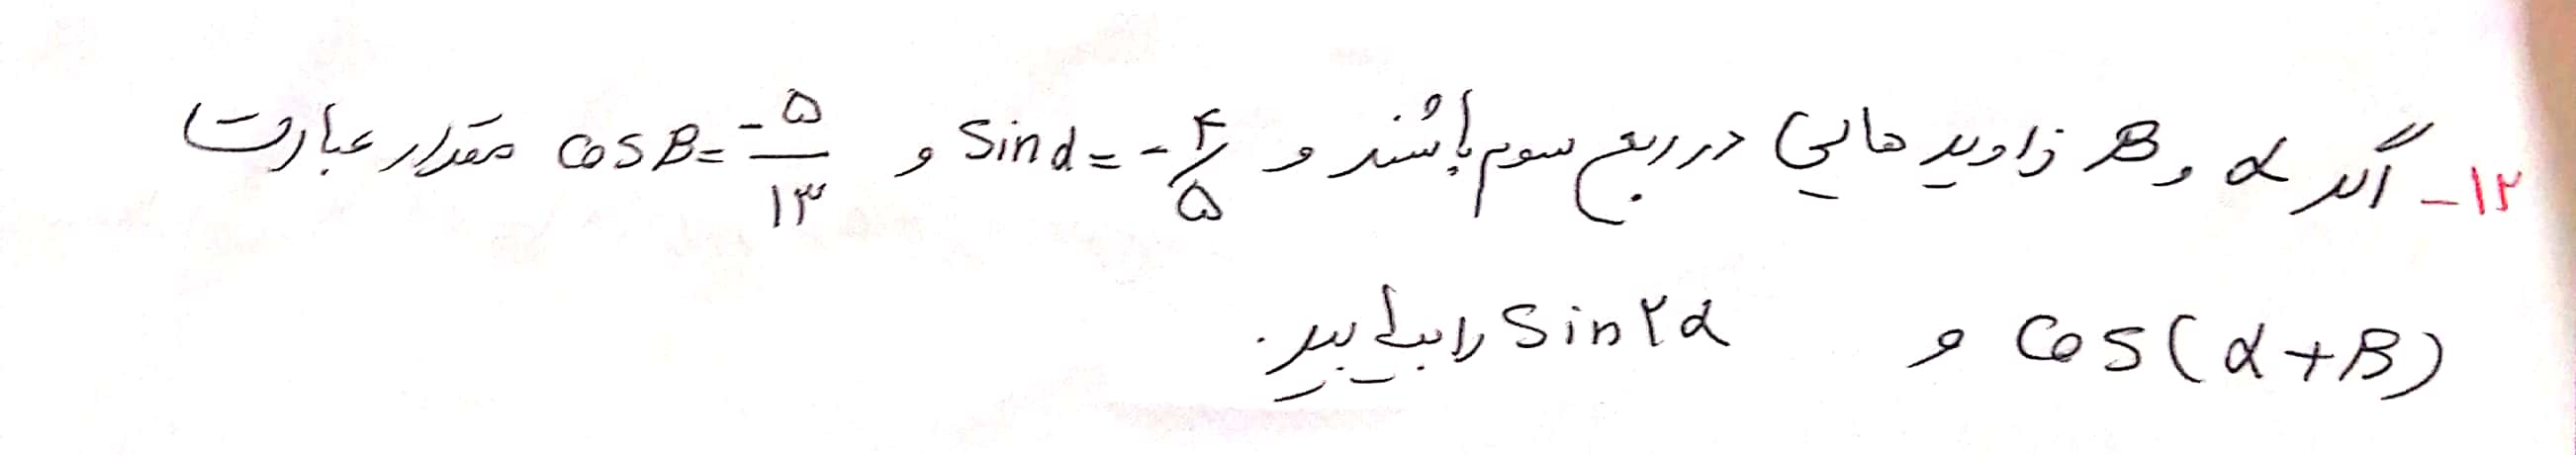 ۱۲- اگر α و B زاویه هایی در ربع سوم باشند و Sin α = -۴/۵ و cos B = -۵/۱۳ مقدار عبارت
Cos(α+B) و Sin ۲α را بیابید.